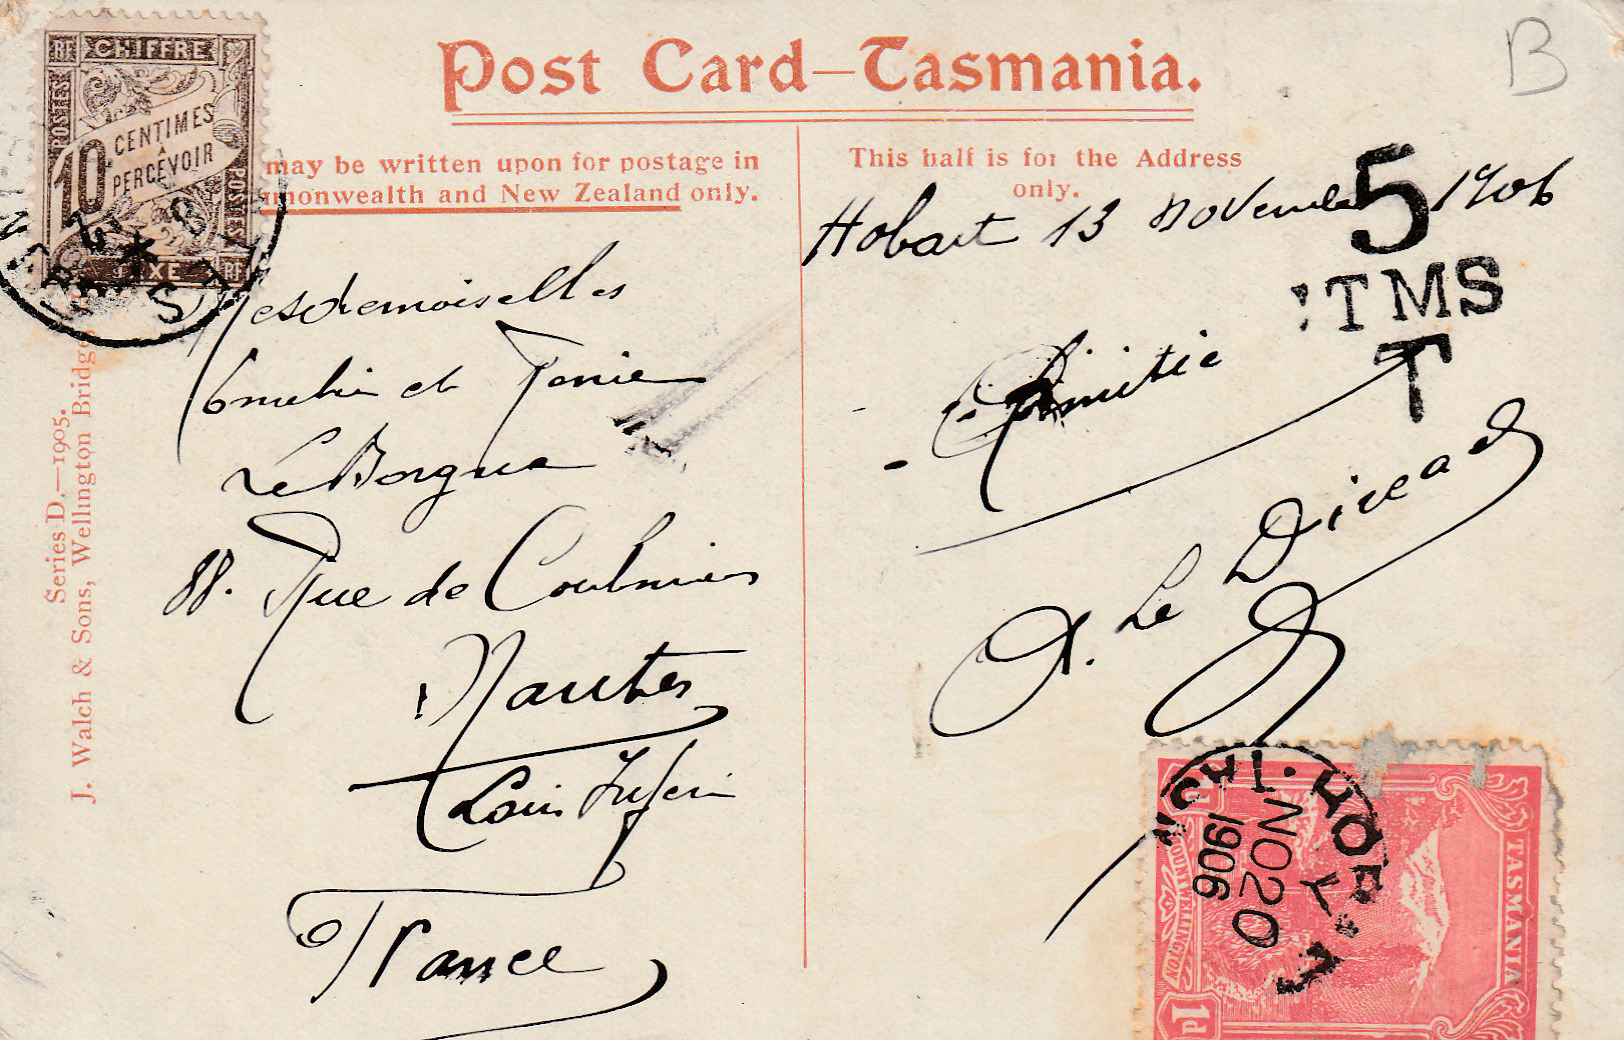 Post Card—Tasmania.
B
RF CHIFFRE
POSTES
10 CENTIMES
À
PERCEVOIR
POSTES
RF
may be written upon for postage in
monwealth and New Zealand only.
This half is for the Address
only.
Hobart 13 Novembre 1906
5
TMS
T
Mesdemoiselles
et
Le Borgne
88. Rue de Coulmiers
Nantes
Loire Infer
France
Amitié
A. Le
Series D.—1905.
J. Walch & Sons, Wellington Bridge
HOB
NO 20
1906
TASMANIA
MOUNT WELLINGTON
1d